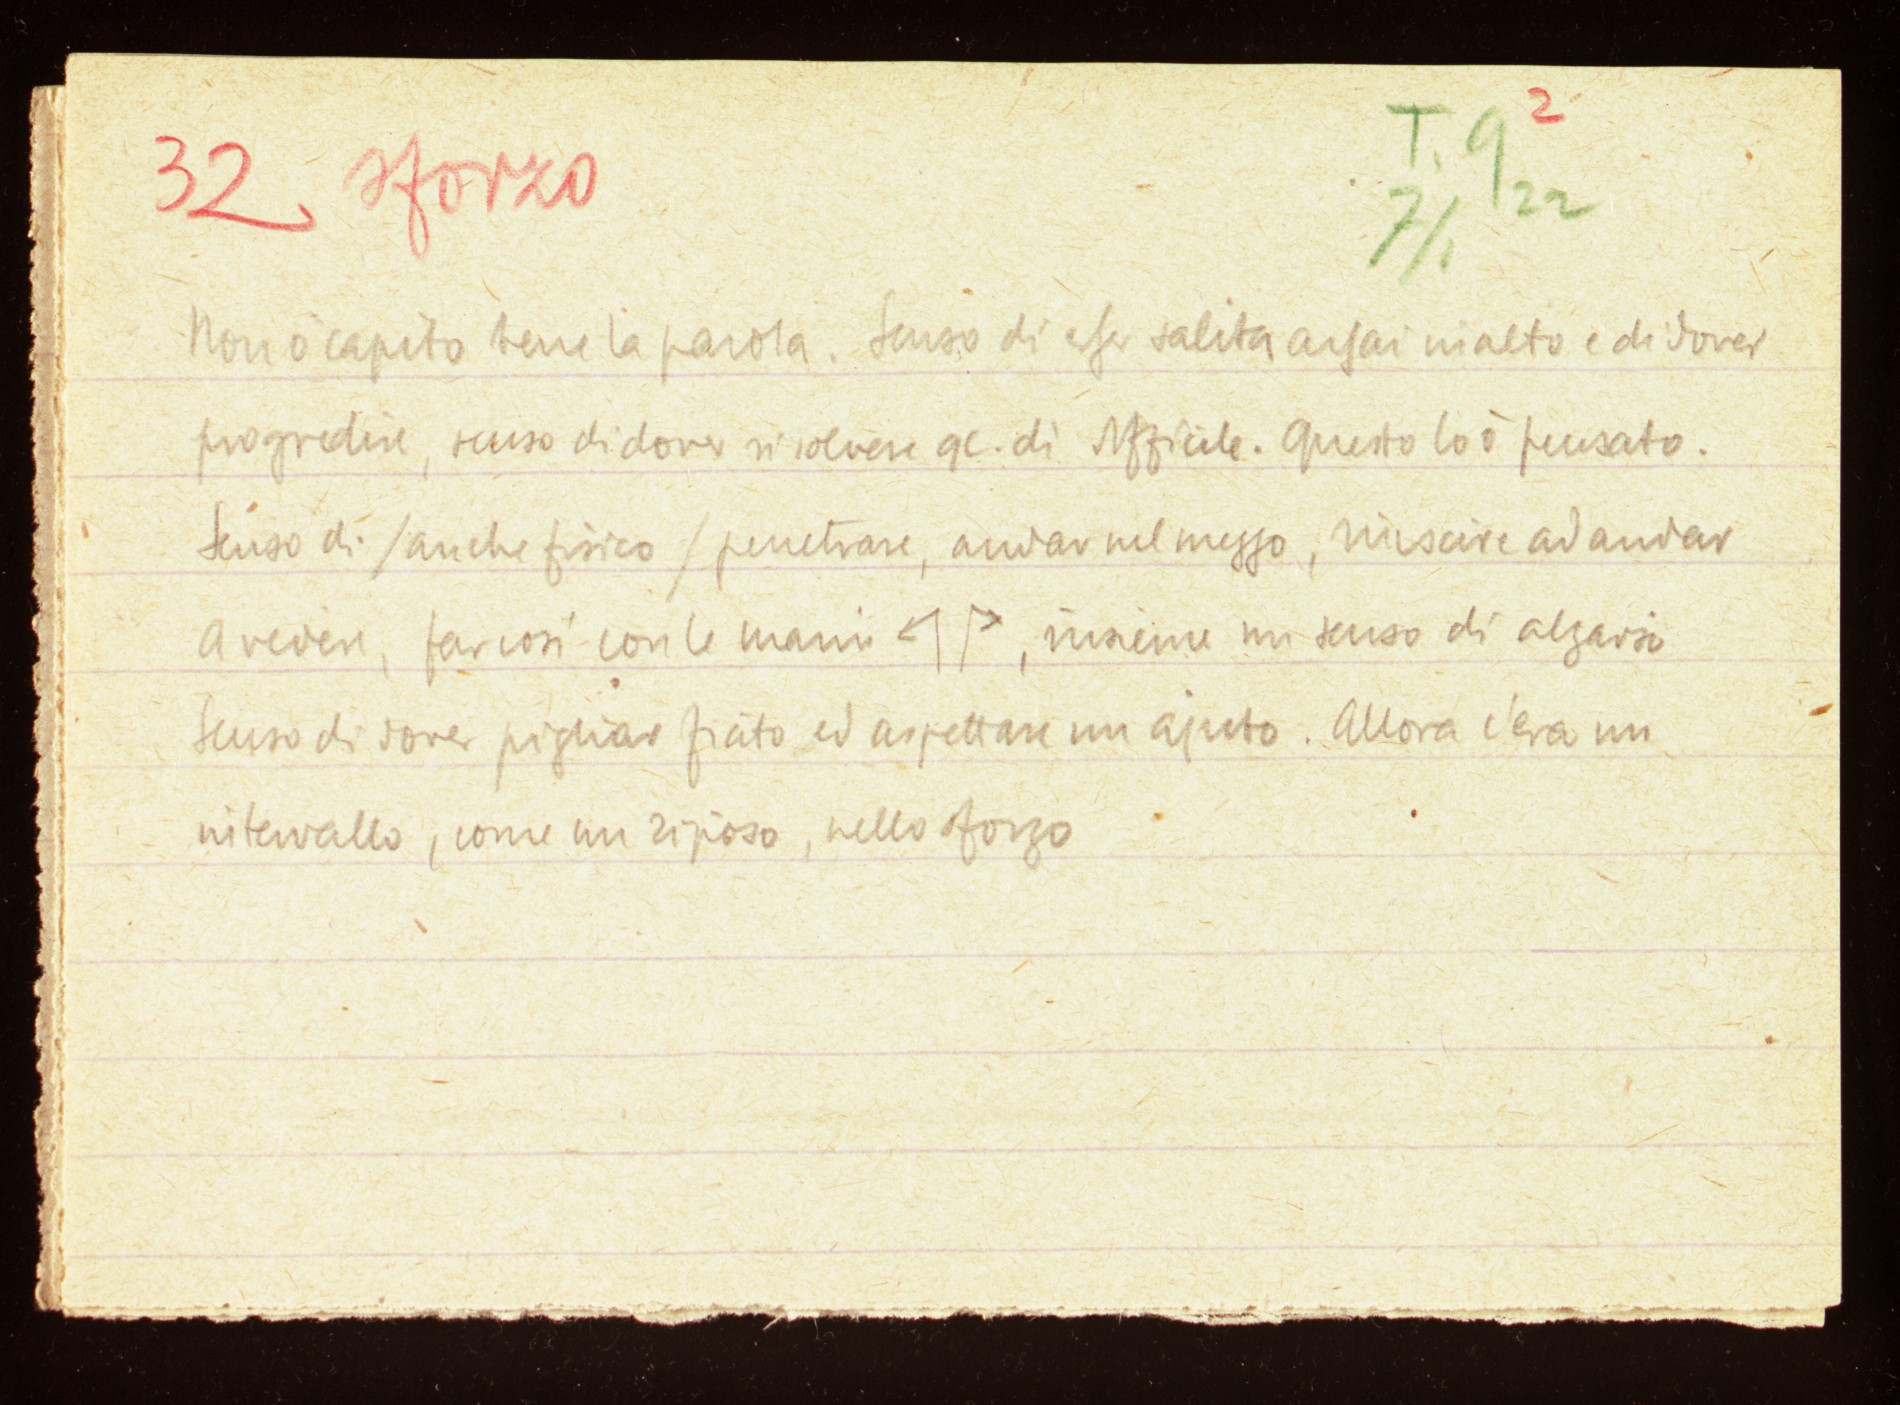 32 sforzo
T. 9 2
7/1 22
Non ò capito bene la parola. Senso di esser salita assai in alto e di dover
progredire, senso di dover risolvere qc. di difficile. Questo lo ò pensato.
Senso di /anche fisico/ penetrare, andar nel mezzo, riuscire ad andar
a vedere, far così con le mani ↰ ↱, insieme un senso di alzarsi
Senso di dover pigliar fiato ed aspettare un ajuto. Allora c'era un
intervallo, come un riposo, nello sforzo